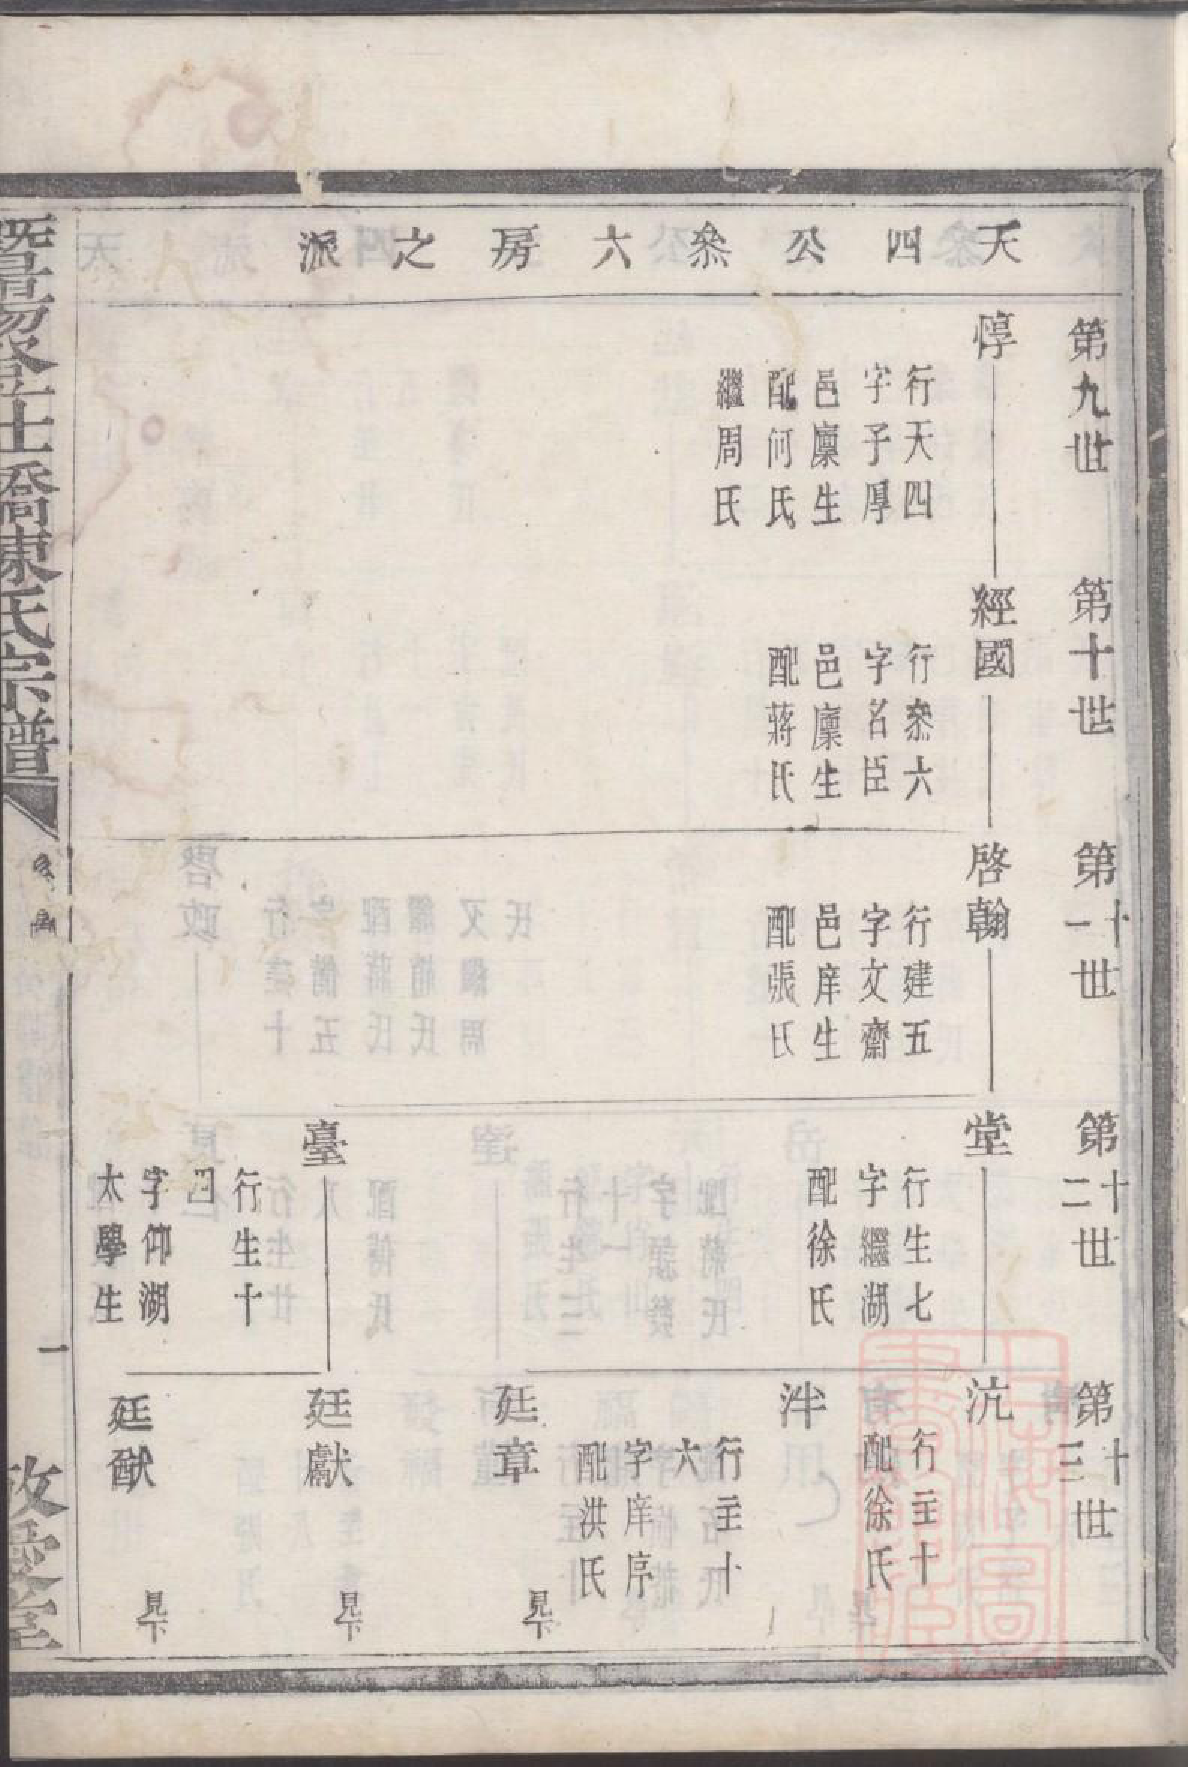 天四公叅六房之派
第九世
惇
行天四
字子厚
邑廩生
配何氏
繼周氏
第十世
經國
行叅六
字名臣
邑廩生
配蔣氏
第十一世
啓翰
行建五
字文齋
邑庠生
配張氏
第十二世
堂
行生七
字繼湖
配徐氏
臺
行生十
四
字仰湖
太學生
第十三世
沆
行主十
配徐氏
泮
行主十
六
字庠序
配洪氏
廷章
見下
廷獻
見下
廷猷
見下
暨陽
橋陳氏宗譜
一